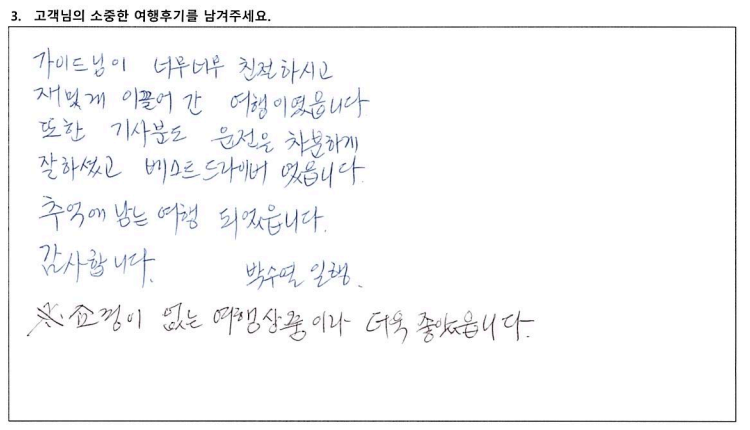 3. 고객님의 소중한 여행후기를 남겨주세요.
가이드님이 너무너무 친절하시고
재밌게 이끌어 간 여행이였읍니다
또한 기사분도 운전을 차분하게
잘하셨고 베스트드라이버 였읍니다.
추억에 남는 여행 되었읍니다.
감사합니다. 박수열 일행.
※. 쇼핑이 없는 여행상품이라 더욱 좋았읍니다.